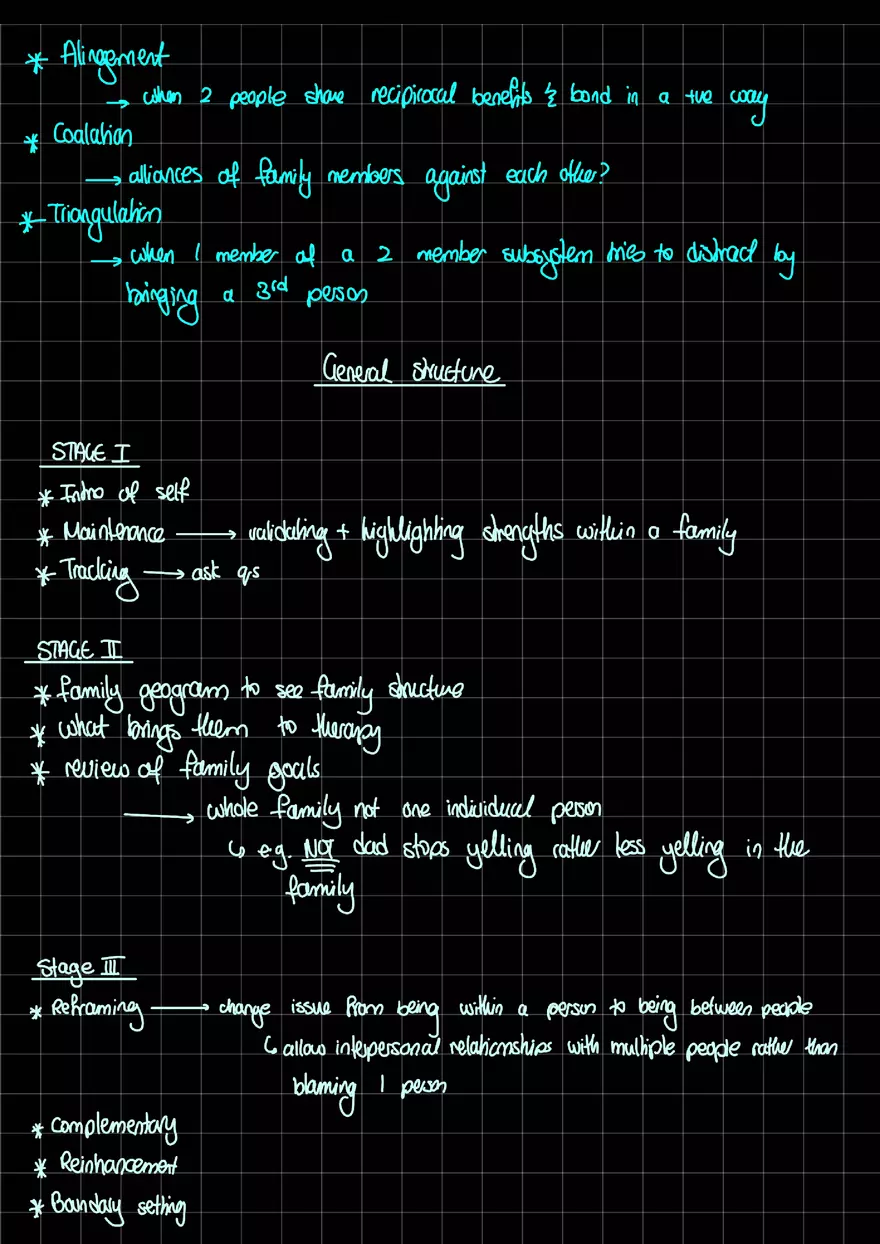 * Alingement
→ when 2 people share recipirocal benefits & bond in a +ve way
* Coalation
→ alliances of family members against each other?
* Triangulation
→ when 1 member of a 2 member subsystem tries to distract by
bringing a 3rd person
General structure
STAGE I
* Intro of self
* Maintenance → validating + highlighting strengths within a family
* Tracking → ask qs
STAGE II
* family geogram to see family structure
* what brings them to therapy
* review of family goals
→ whole family not one individual person
↳ e.g. NOT dad stops yelling rather less yelling in the
family
Stage III
* Reframing → change issue from being within a person to being between people
↳ allow interpersonal relationships with multiple people rather than
blaming 1 person
* Complementary
* Reinhancement
* Boundary setting